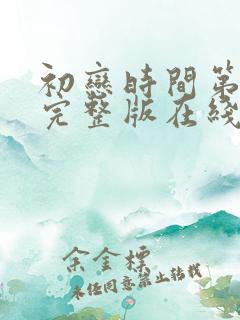 初戀時間第
完整版在綫
余金標
未经同意禁止转载